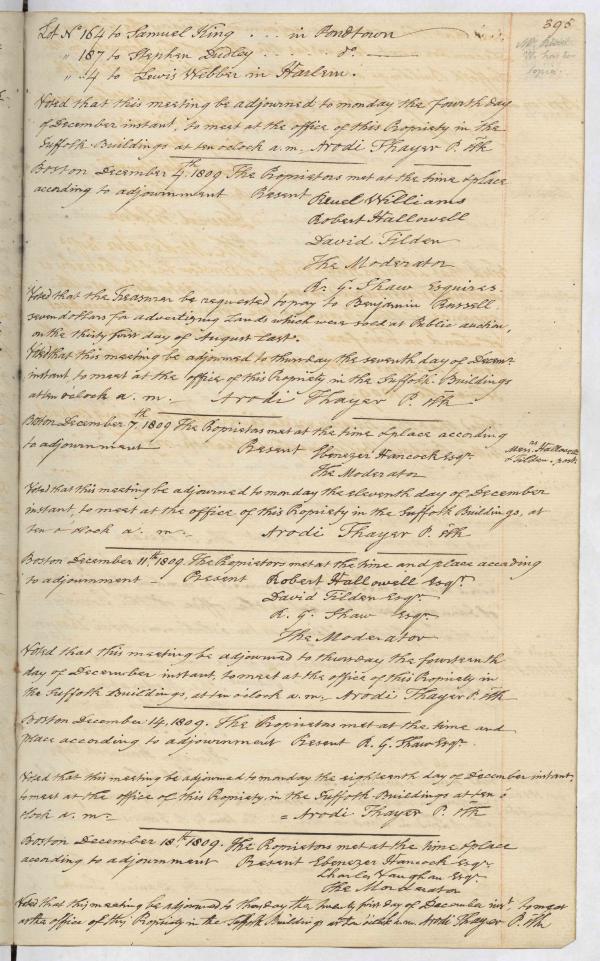 395
Lot No 164 to Samuel King . . . in Pondtown
" 187 to Stephen Dudley . . . . . do. —
" 34 to Lewis Webber in Harlem.
Voted that this meeting be adjourned to monday the fourth day
of December instant, to meet at the office of this Propriety in the
Suffolk Buildings at ten oclock a.m. Arodi Thayer P. Clk
Boston December 4th 1809 The Proprietors met at the time & place
according to adjournment Present Reuel Williams
Robert Hallowell
David Tilden
The Moderator
R. G. Shaw Esquires
Voted that the Treasurer be requested to pay to Benjamin Russell
seven dollars for advertizing Lands which were sold at Public auction,
on the thirty first day of August last.
Voted that this meeting be adjourned to thursday the seventh day of Decemr
instant to meet at the office of this Propriety in the Suffolk Buildings
at ten oclock a. m. Arodi Thayer P. Clk
Boston December 7th 1809 The Proprietors met at the time & place according
to adjournment Present Ebenezer Hancock Esqr
The Moderator
Hallowell
& Tilden
Voted that this meeting be adjourned to monday the eleventh day of December
instant, to meet at the office of this Propriety in the Suffolk Buildings, at
ten o'clock a. m. Arodi Thayer P. Clk
Boston December 11th 1809. The Proprietors met at the time and place according
to adjournment – Present Robert Hallowell Esqr
David Tilden Esqr
R. G. Shaw Esqr
The Moderator
Voted that this meeting be adjourned to thursday the fourteenth
day of December instant, to meet at the office of this Propriety in
the Suffolk Buildings, at ten oclock a. m. Arodi Thayer P. Clk
Boston December 14. 1809. The Proprietors met at the time and
place according to adjournment Present R. G. Shaw Esqr
Voted that this meeting be adjourned to monday the eighteenth day of December instant,
to meet at the office of this Propriety in the Suffolk Buildings at ten o
clock a. m. = Arodi Thayer P. Clk
Boston December 18th 1809. The Proprietors met at the time & place
according to adjournment Present Ebenezer Hancock Esqr
Charles Vaughan Esqr
The Moderator
Voted that this meeting be adjourned to thursday the twenty first day of December inst, to meet
at the office of this Propriety in the Suffolk Buildings at ten oclock a.m. Arodi Thayer P. Clk